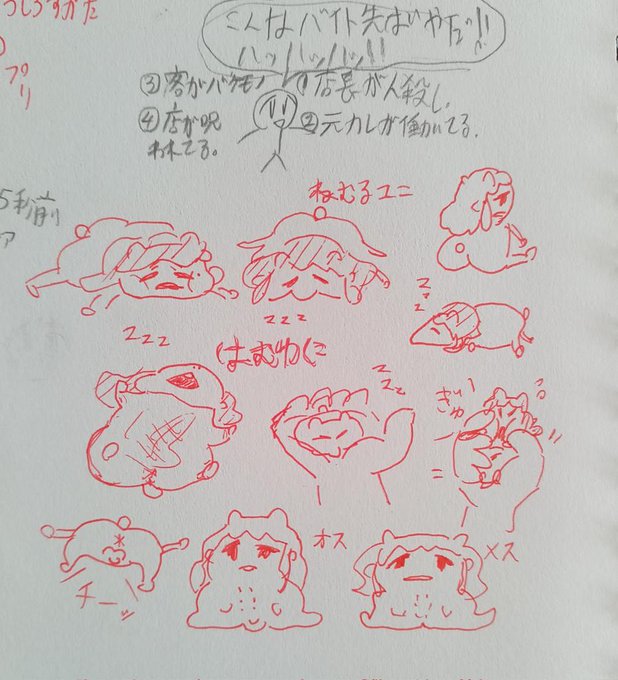 こんなバイト先はいやだ!!
ハッハッハッ!!
①店長が人殺し、
②元カレが働いてる。
③客がバケモノ
④店が呪
われてる。
プリ
5秒前
ア
ねむるユニ
zzz
zzz
はむわに
zzz
zzz
ぎゅ
る
チーッ
オス
メス